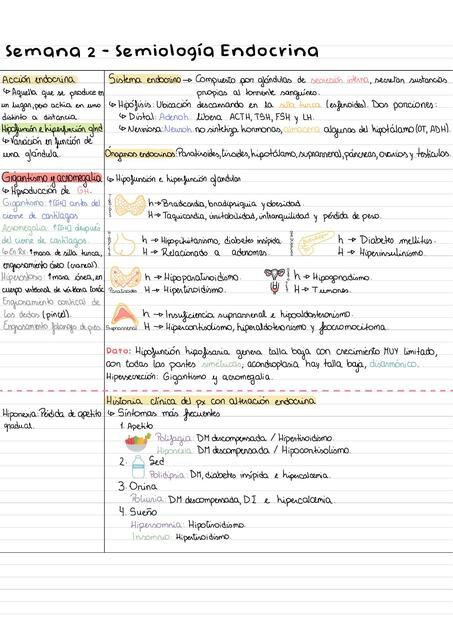 Semana 2 - Semiología Endocrina
Acción endocrina
↳ Aquella que se produce en
un lugar, pero actúa en uno
distinto a distancia.
Hipofunción e hiperfunción gland
↳ Variación en función de
una glándula.
Gigantismo y acromegalia
↳ Hiproducción de GH.
Gigantismo: ↑GH antes del
cierre de cartílagos.
Acromegalia: ↑GH después
del cierre de cartílagos.
↳ En Rx: ↑masa de silla turca,
engrosamiento óseo (craneal).
Hiperostosis: ↑masa ósea, en
cuerpo vertebral de vértebra
Engrosamiento cortical de
los dedos (pincel).
Engrosamiento
Sistema endocrino → Compuesto por glándulas de secreción interna, secretan sustancias
propias al torrente sanguíneo.
↳ Hipófisis: Ubicación descansando en la silla turca (esfenoides). Dos porciones:
↳ Distal: Adenoh. libera ACTH, TSH, FSH y LH.
↳ Nerviosa: Neuroh no sintetiza hormonas, almacena algunas del hipotálamo (OT, ADH).
Órganos endocrinos: Paratiroides, tiroides, hipotálamo, suprarrenal, páncreas, ovarios y testículos.
↳ Hipofunción e hiperfunción glandular
h → Bradicardia, bradipsiquia y obesidad.
H → Taquicardia, irritabilidad, intranquilidad y pérdida de peso.
h → Hipopituitarismo, diabetes insípida
H → Relacionado a adenomas.
h → Diabetes mellitus.
H → Hiperinsulinismo.
Paratiroides
h → Hipoparatiroidismo.
H → Hipertiroidismo.
h → Hipogonadismo.
H → Tumores.
Suprarrenal
h → Insuficiencia suprarrenal e hipoaldosteronismo.
H → Hipercortisolismo, hiperaldosteronismo y feocromocitoma.
Dato: Hipofunción hipofisaria genera talla baja con crecimiento MUY limitado,
con todas las partes simétricas; acondroplasia hay talla baja, disarmónico.
Hipersecreción: Gigantismo y acromegalia.
Hiporexia: Pérdida de apetito
gradual.
Historia clínica del px con alteración endocrina
↳ Síntomas más frecuentes
1. Apetito
Polifagia: DM descompensada / Hipertiroidismo.
Hiporexia: DM descompensada / Hipocortisolismo.
2. Sed
Polidipsia: DM, diabetes insípida e hipercalcemia.
3. Orina
Poliuria: DM descompensada, D.I e hipercalcemia.
4. Sueño
Hipersomnia: Hipotiroidismo.
Insomnio: Hipertiroidismo.